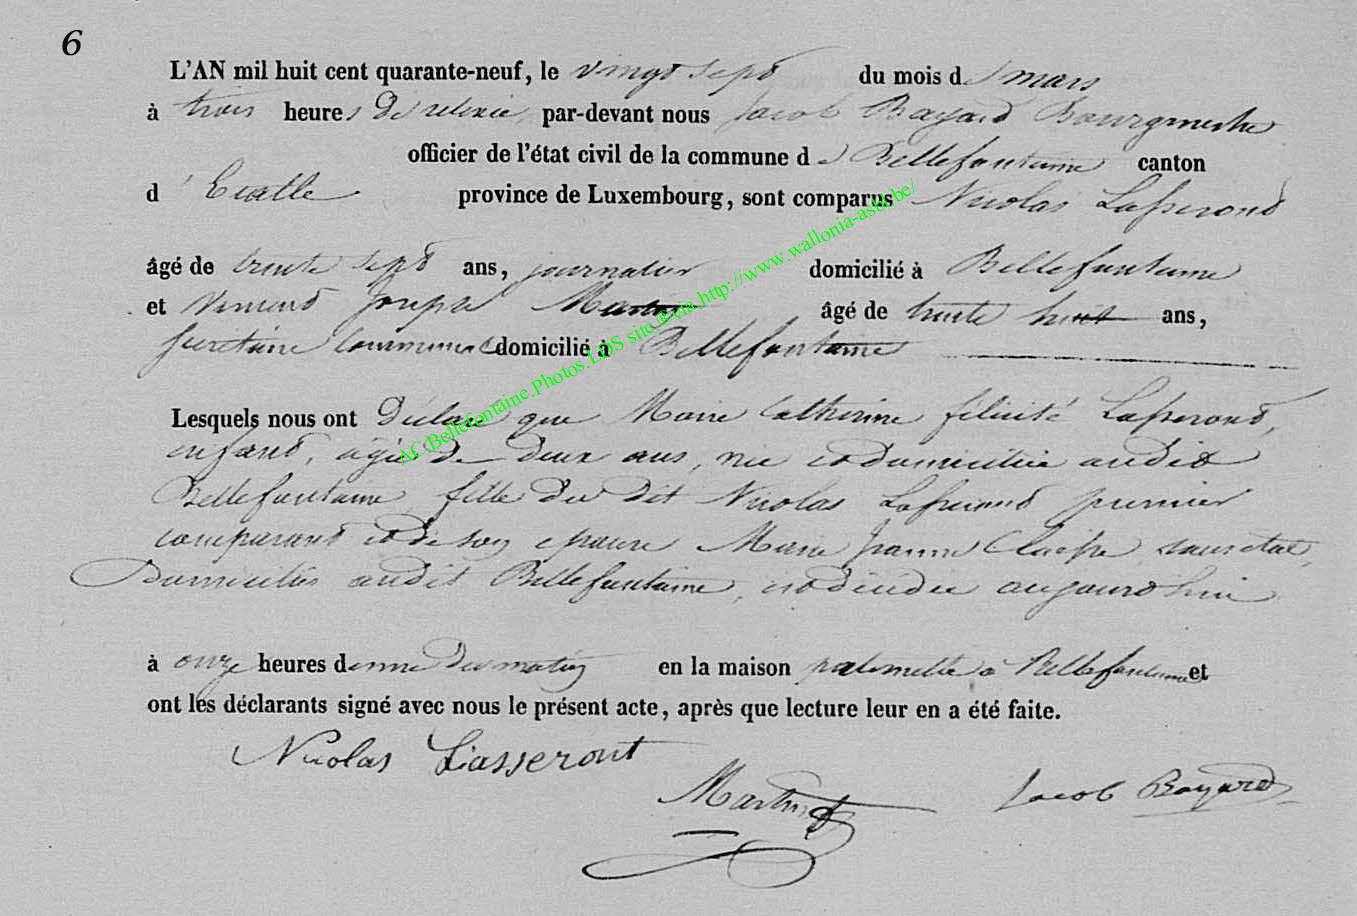 6
L'AN mil huit cent quarante-neuf, le vingt sept du mois de mars
à trois heures de relevée, par-devant nous Jacob Bayard Bourgmestre
officier de l'état civil de la commune de Bellefontaine canton
d'Etalle province de Luxembourg, sont comparus Nicolas Lasseront
âgé de trente sept ans, journalier domicilié à Bellefontaine
et Vincent Joseph Martin âgé de trente huit ans,
secrétaire communal domicilié à Bellefontaine
Lesquels nous ont déclaré que Marie Catherine félicité Lasseront,
enfant, âgée de deux ans, née et domiciliée audit
Bellefontaine, fille du dit Nicolas Lasseront premier
comparant et de son épouse Marie Jeanne sans état,
domiciliés audit Bellefontaine, est décédée aujourd'hui
à onze heures du matin en la maison paternelle à Bellefontaine et
ont les déclarants signé avec nous le présent acte, après que lecture leur en a été faite.
Nicolas Liasseront
Martin Jacob Bayard
AC Bellefontaine.Photos.LDS site & via http://www.wallonia-asbl.be/